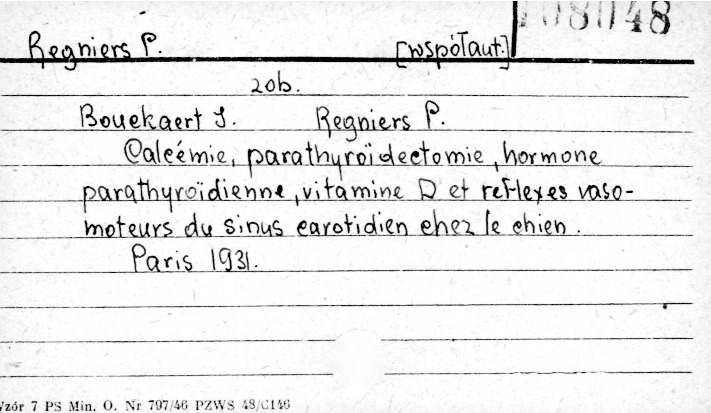 108048
Regniers P. [współaut.]
zob.
Bouckaert J. Regniers P.
Calcémie, parathyroïdectomie, hormone
parathyroïdienne, vitamine D et reflexes vaso-
moteurs du sinus carotidien chez le chien.
Paris 1931.
Wzór 7 PS Min. O. Nr 797/46 PZWS 48/C146